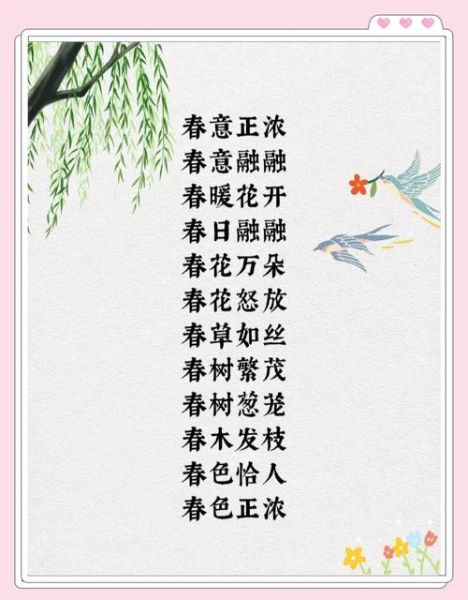 春意正浓
春意融融
春暖花开
春日融融
春花万朵
春花怒放
春草如丝
春树繁茂
春树葱茏
春木发枝
春色恰人
春色正浓